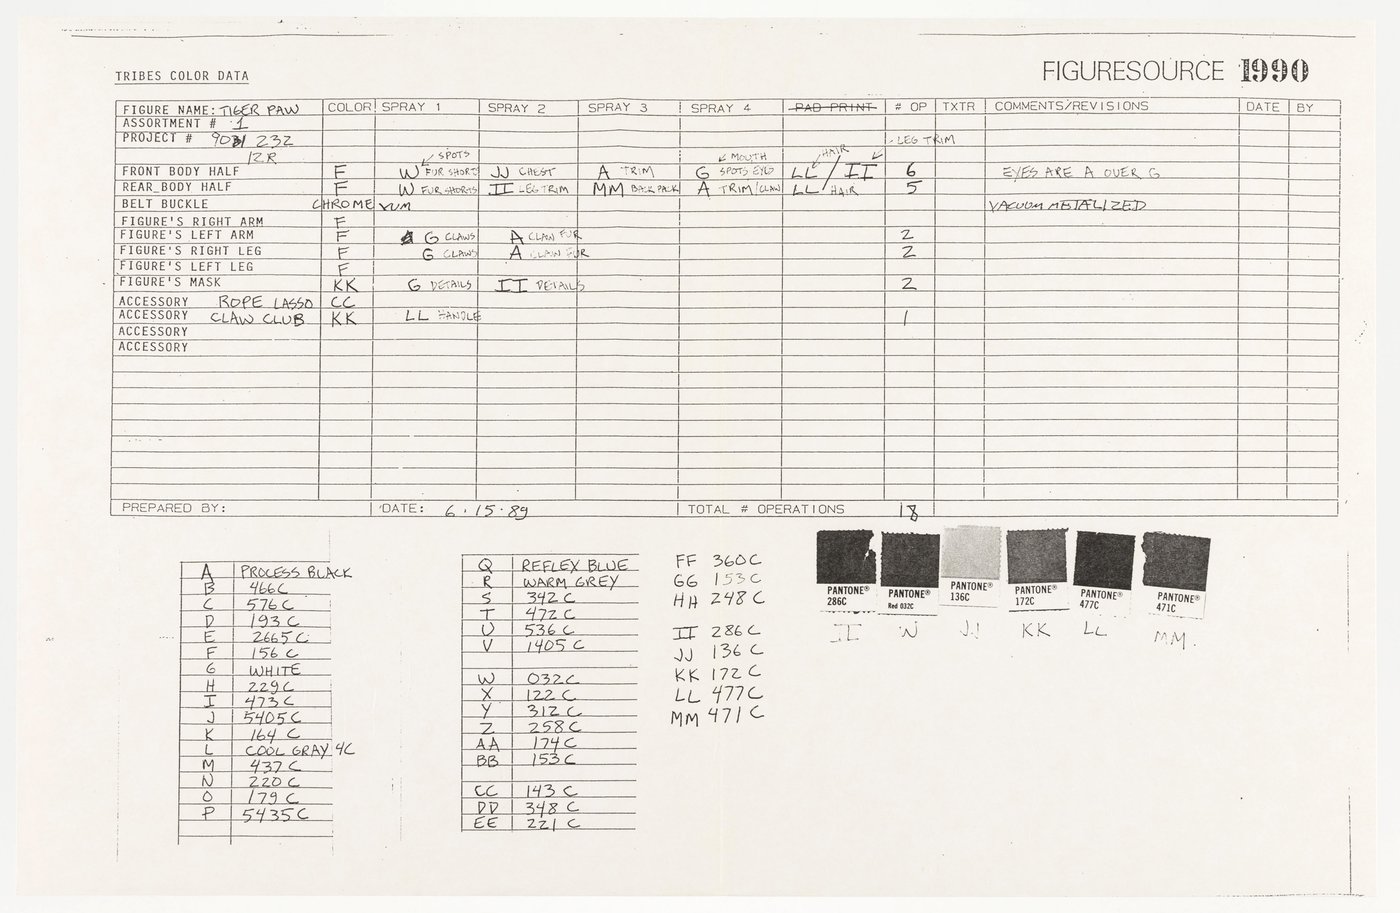 TRIBES COLOR DATA
FIGURESOURCE 1990
FIGURE NAME: TIGER PAW COLOR SPRAY 1 SPRAY 2 SPRAY 3 SPRAY 4 PAD PRINT # OP TXTR COMMENTS/REVISIONS DATE BY
ASSORTMENT # 1
PROJECT # 9031 232 LEG TRIM
12R SPOTS MOUTH HAIR
FRONT BODY HALF F W FUR SHORT JJ CHEST A TRIM G SPOTS EYES LL / II 6 EYES ARE A OVER G
REAR BODY HALF F W FUR SHORTS II LEG TRIM MM BACK PACK A TRIM/CLAW LL HAIR 5
BELT BUCKLE CHROME VUM VACUUM METALIZED
FIGURE'S RIGHT ARM F
FIGURE'S LEFT ARM F G CLAWS A CLAW FUR 2
FIGURE'S RIGHT LEG F G CLAWS A CLAW FUR 2
FIGURE'S LEFT LEG F
FIGURE'S MASK KK G DETAILS II DETAILS 2
ACCESSORY ROPE LASSO CC
ACCESSORY CLAW CLUB KK LL HANDLE 1
ACCESSORY
ACCESSORY
PREPARED BY: DATE: 6.15.89 TOTAL # OPERATIONS 18
A PROCESS BLACK
B 466C
C 576C
D 193C
E 2665C
F 156C
G WHITE
H 229C
I 473C
J 5405C
K 164C
L COOL GRAY 4C
M 437C
N 220C
O 179C
P 5435C
Q REFLEX BLUE
R WARM GREY
S 342C
T 472C
U 536C
V 1405C
W 032C
X 122C
Y 312C
Z 258C
AA 174C
BB 153C
CC 143C
DD 348C
EE 221C
FF 360C
GG 153C
HH 248C
II 286C
JJ 136C
KK 172C
LL 477C
MM 471C
PANTONE®
286C
II
PANTONE®
Red 032C
W
PANTONE®
136C
JJ
PANTONE®
172C
KK
PANTONE®
477C
LL
PANTONE®
471C
MM.